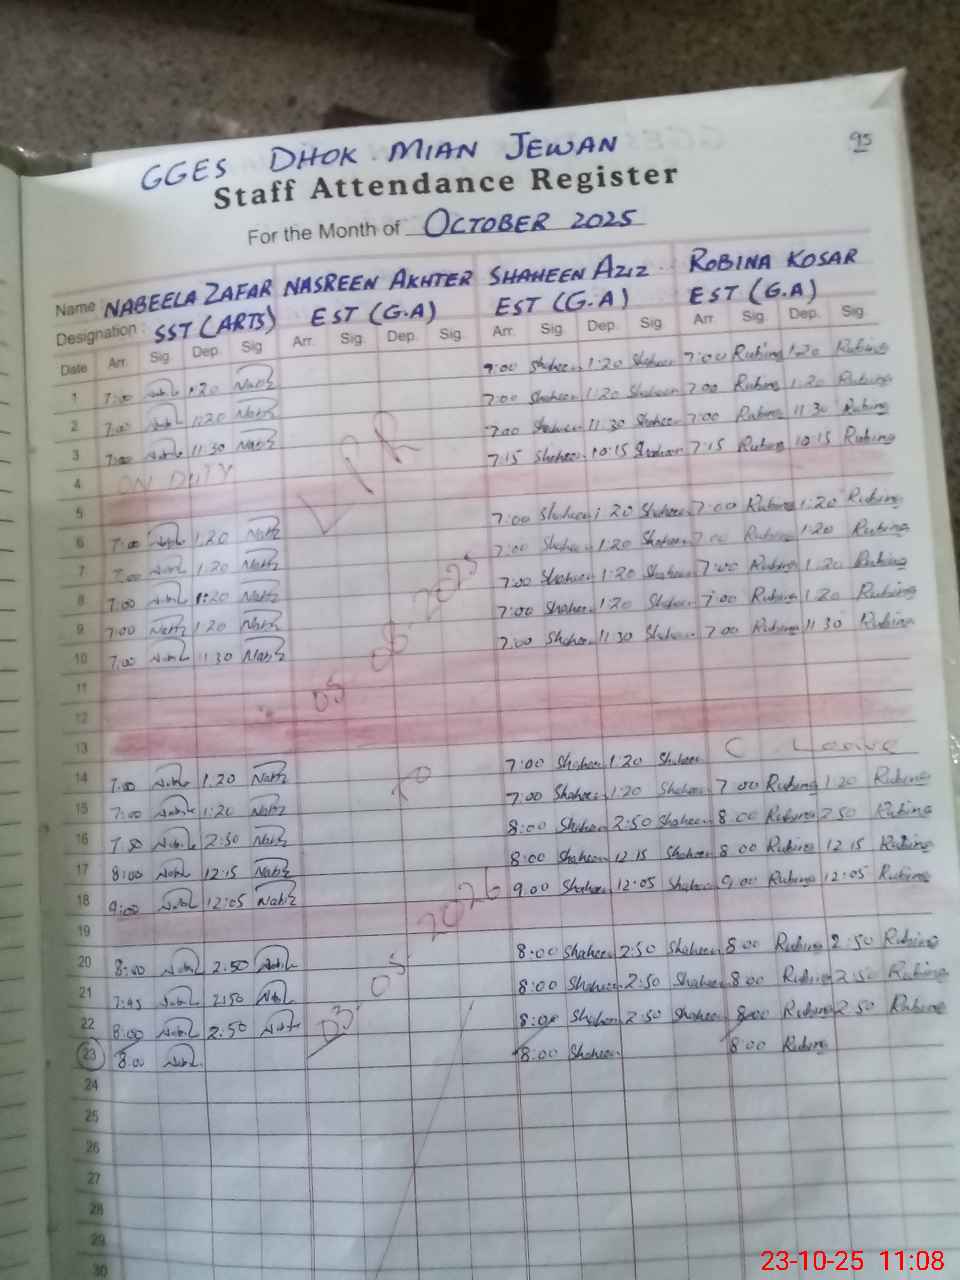 95
GGES DHOK MIAN JEWAN
Staff Attendance Register
For the Month of OCTOBER 2025
Name NABEELA ZAFAR NASREEN AKHTER SHAHEEN AZIZ ROBINA KOSAR
Designation: SST (ARTS) EST (G.A) EST (G.A) EST (G.A)
Date Arr. Sig Dep. Sig Arr. Sig. Dep. Sig. Arr. Sig. Dep. Sig Arr. Sig. Dep. Sig.
1 7:00 1:20 7:00 Shaheen 1:20 Shaheen 7:00 Rubina 1:20 Rubina
2 7:00 1:20 7:00 Shaheen 1:20 Shaheen 7:00 Rubina 1:20 Rubina
3 7:00 11:30 7:00 Shaheen 11:30 Shaheen 7:00 Rubina 11:30 Rubina
4 ON DUTY 7:15 Shaheen 10:15 Shaheen 7:15 Rubina 10:15 Rubina
LPR
5
6 7:00 1:20 7:00 Shaheen 1:20 Shaheen 7:00 Rubina 1:20 Rubina
7 7:00 1:20 7:00 Shaheen 1:20 Shaheen 7:00 Rubina 1:20 Rubina
8 7:00 1:20 7:00 Shaheen 1:20 Shaheen 7:00 Rubina 1:20 Rubina
9 7:00 1:20 7:00 Shaheen 1:20 Shaheen 7:00 Rubina 1:20 Rubina
10 7:00 11:30 7:00 Shaheen 11:30 Shaheen 7:00 Rubina 11:30 Rubina
11
12
13
14 7:00 1:20 7:00 Shaheen 1:20 Shaheen C Leave
15 7:00 1:20 7:00 Shaheen 1:20 Shaheen 7:00 Rubina 1:20 Rubina
16 2:50 8:00 Shaheen 2:50 Shaheen 8:00 Rubina 2:50 Rubina
17 8:00 12:15 8:00 Shaheen 12:15 Shaheen 8:00 Rubina 12:15 Rubina
18 9:00 12:05 9:00 Shaheen 12:05 Shaheen 9:00 Rubina 12:05 Rubina
19
20 8:00 2:50 8:00 Shaheen 2:50 Shaheen 8:00 Rubina 2:50 Rubina
21 7:45 2:50 8:00 Shaheen 2:50 Shaheen 8:00 Rubina 2:50 Rubina
22 8:00 2:50 8:00 Shaheen 2:50 Shaheen 8:00 Rubina 2:50 Rubina
23 8:00 8:00 Shaheen 8:00 Rubina
24
25
26
27
28
29
30
23-10-25 11:08